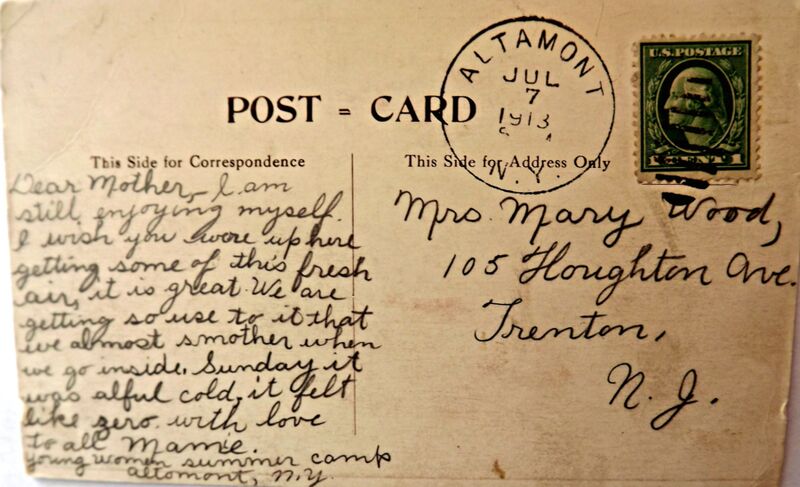 ALTAMONT
JUL
7
1913
N.Y.
U.S. POSTAGE
POST = CARD
This Side for Correspondence
This Side for Address Only
Dear Mother, I am
still enjoying myself.
I wish you were up here
getting some of this fresh
air, it is great. We are
getting so use to it that
we almost smother when
we go inside. Sunday it
was alful cold, it felt
like zero. with love
to all Mamie.
young women summer camp
altomont, N.Y.
Mrs. Mary Wood,
105 Houghton Ave.
Trenton,
N. J.